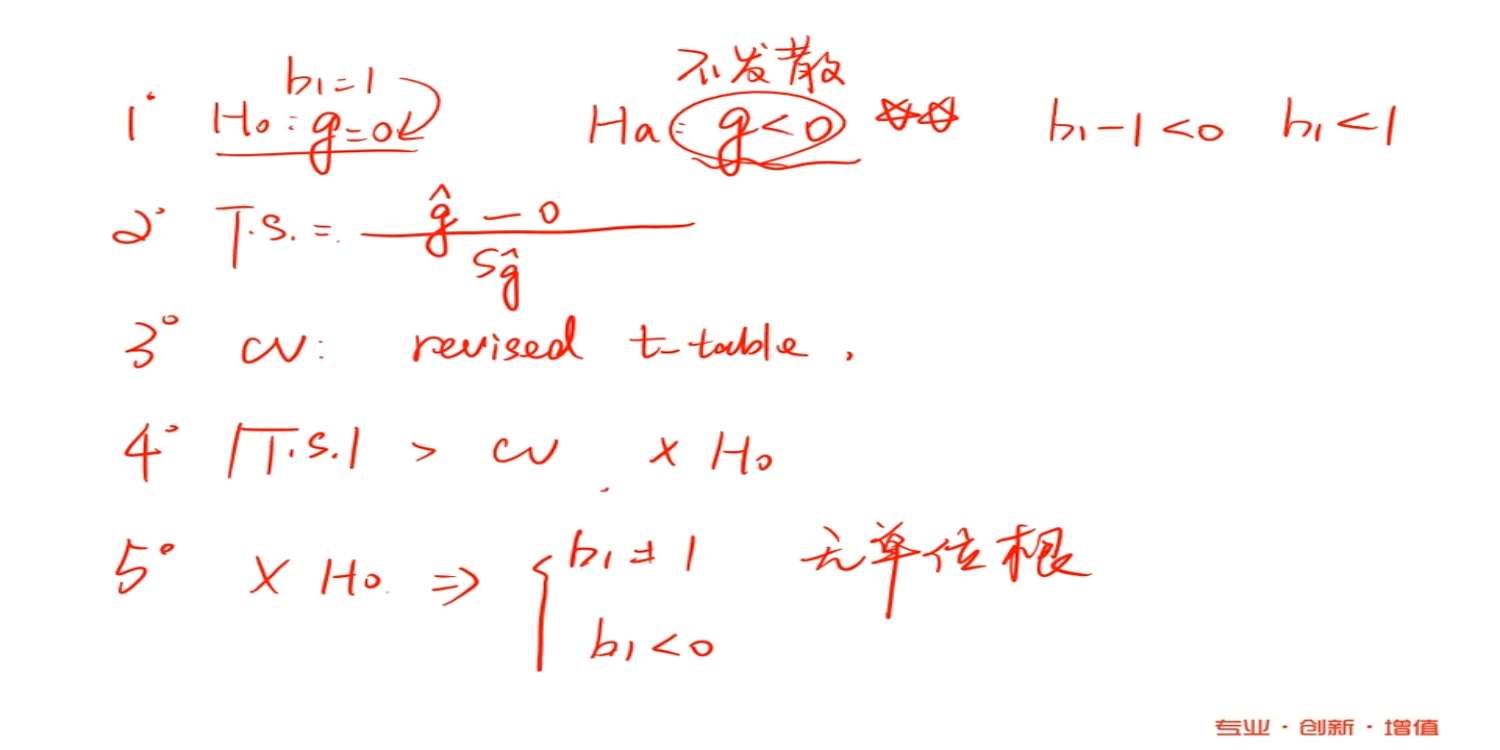 b₁=1 不发散
1° H₀: g=0 Ha: g<0 ☆☆ b₁-1<0 b₁<1
2° T.S. = (ĝ - 0) / Sĝ
3° CV: revised t-table.
4° |T.S.| > CV × H₀
5° × H₀. ⇒ { b₁≠1 无单位根
b₁<0
专业·创新·增值